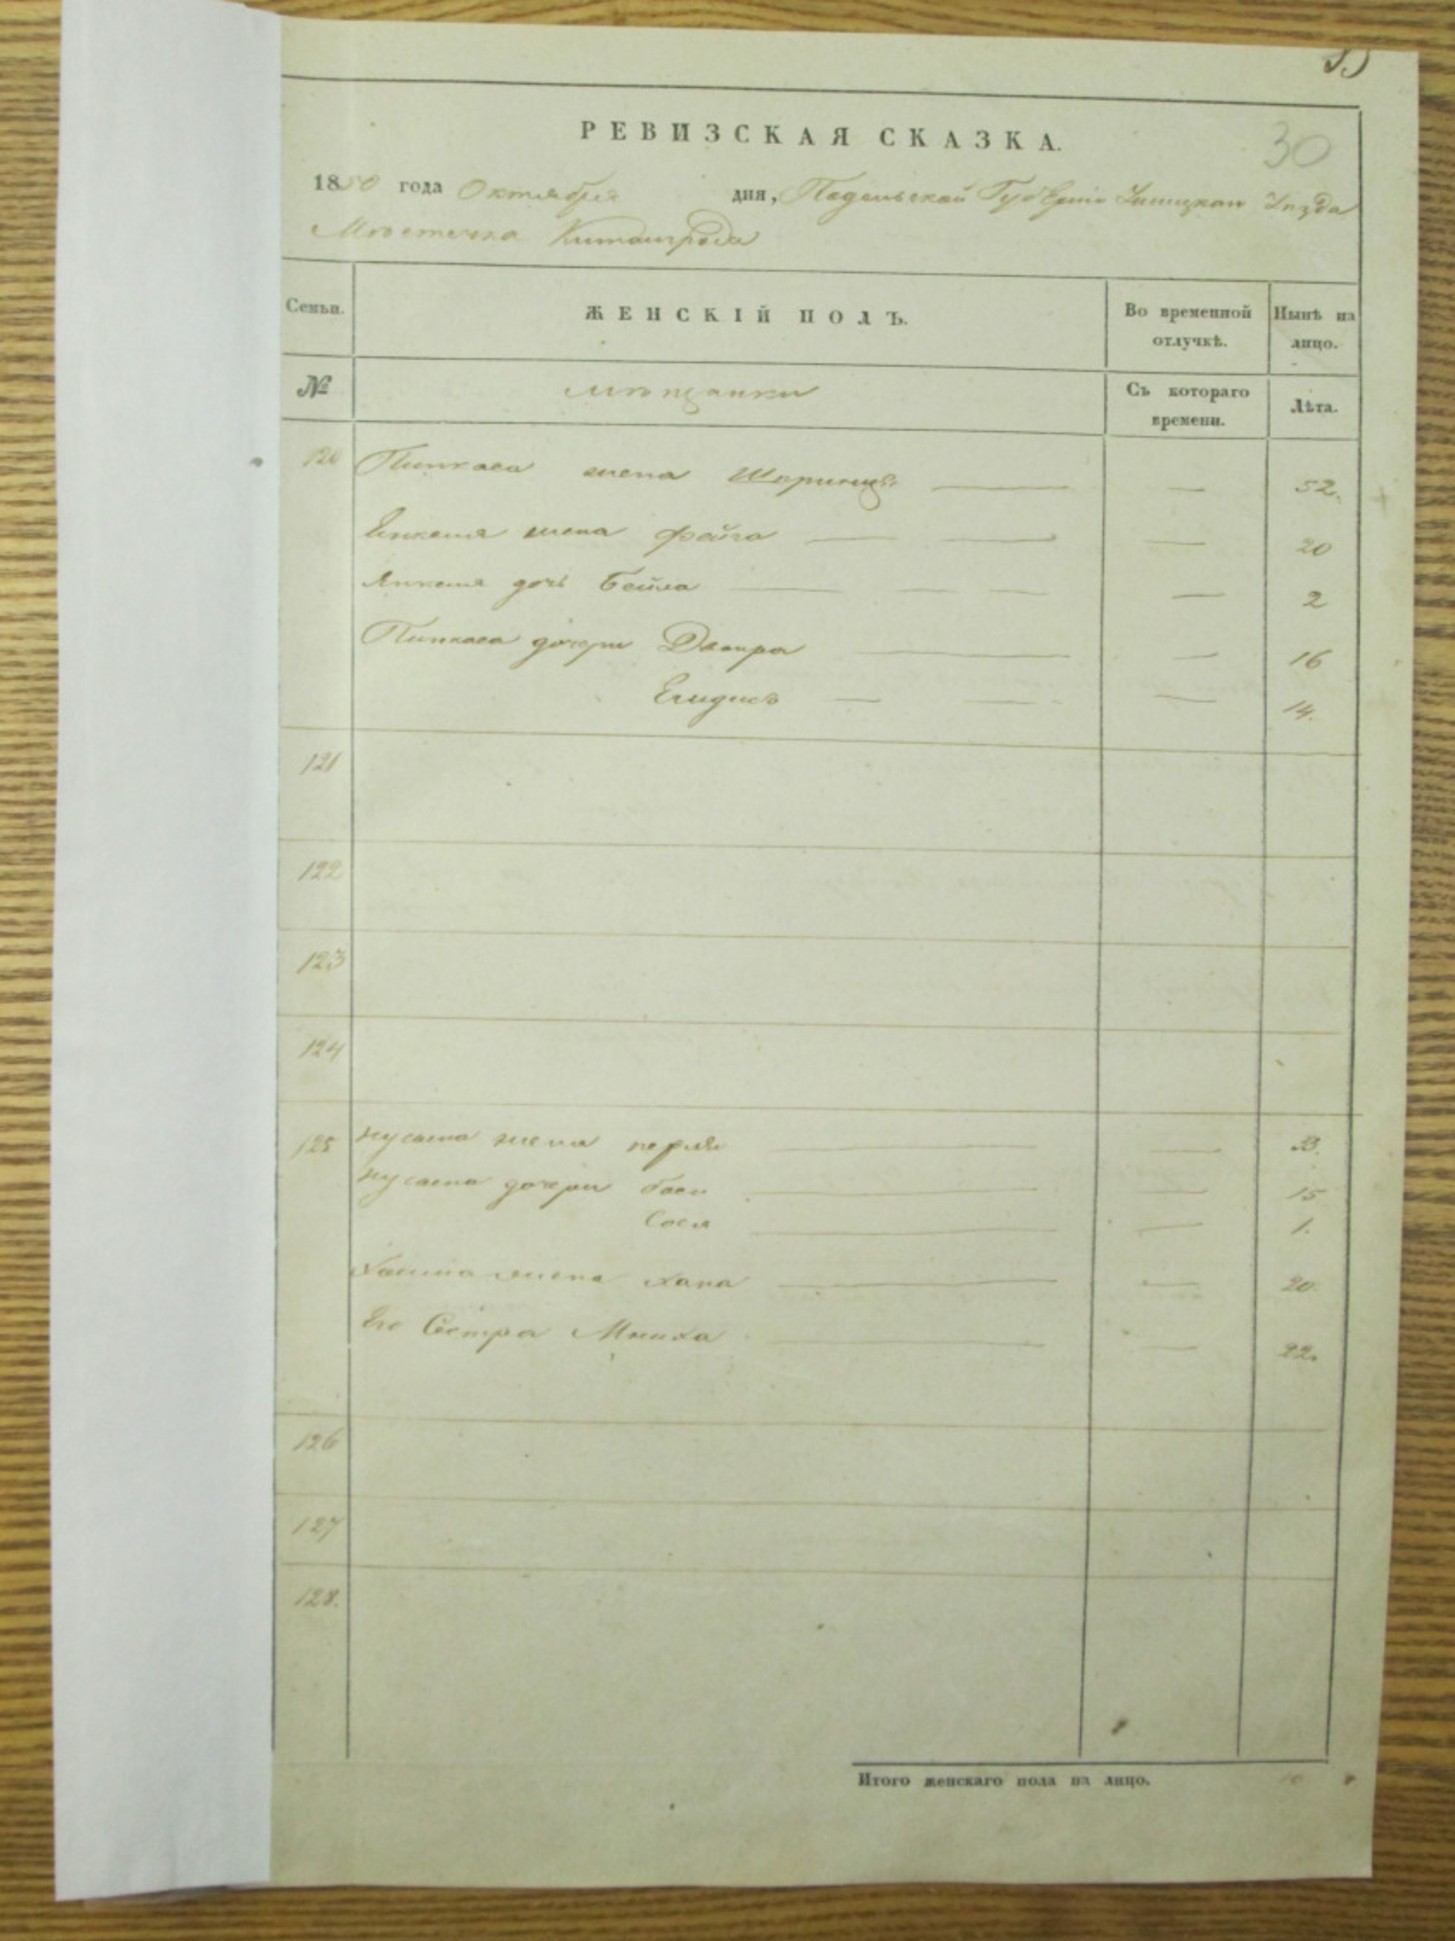 РЕВИЗСКАЯ СКАЗКА.
30
1850 года Октября дня, Падольской Губернiи Ушицкаго Уѣзда
Мѣстечка Китайгрода
Семьи.
ЖЕНСКІЙ ПОЛЪ.
Во временной отлучкѣ.
Нынѣ на лицо.
№
мѣщанки
Съ котораго времени.
Лѣта.
120 Пинкаса жена Шпринца — 52.
Янкеля жена Фейга — 20
Янкеля дочь Бейла — 2
Пинкаса дочери Двойра — 16
— 14.
121
122
123
124
125 Нусина жена перля — 33.
Нусина дочери баси — 15
Сося — 1.
Хаима жена хана — 20.
Его Сестра — 22.
126
127
128.
Итого женскаго пола на лицо. 10